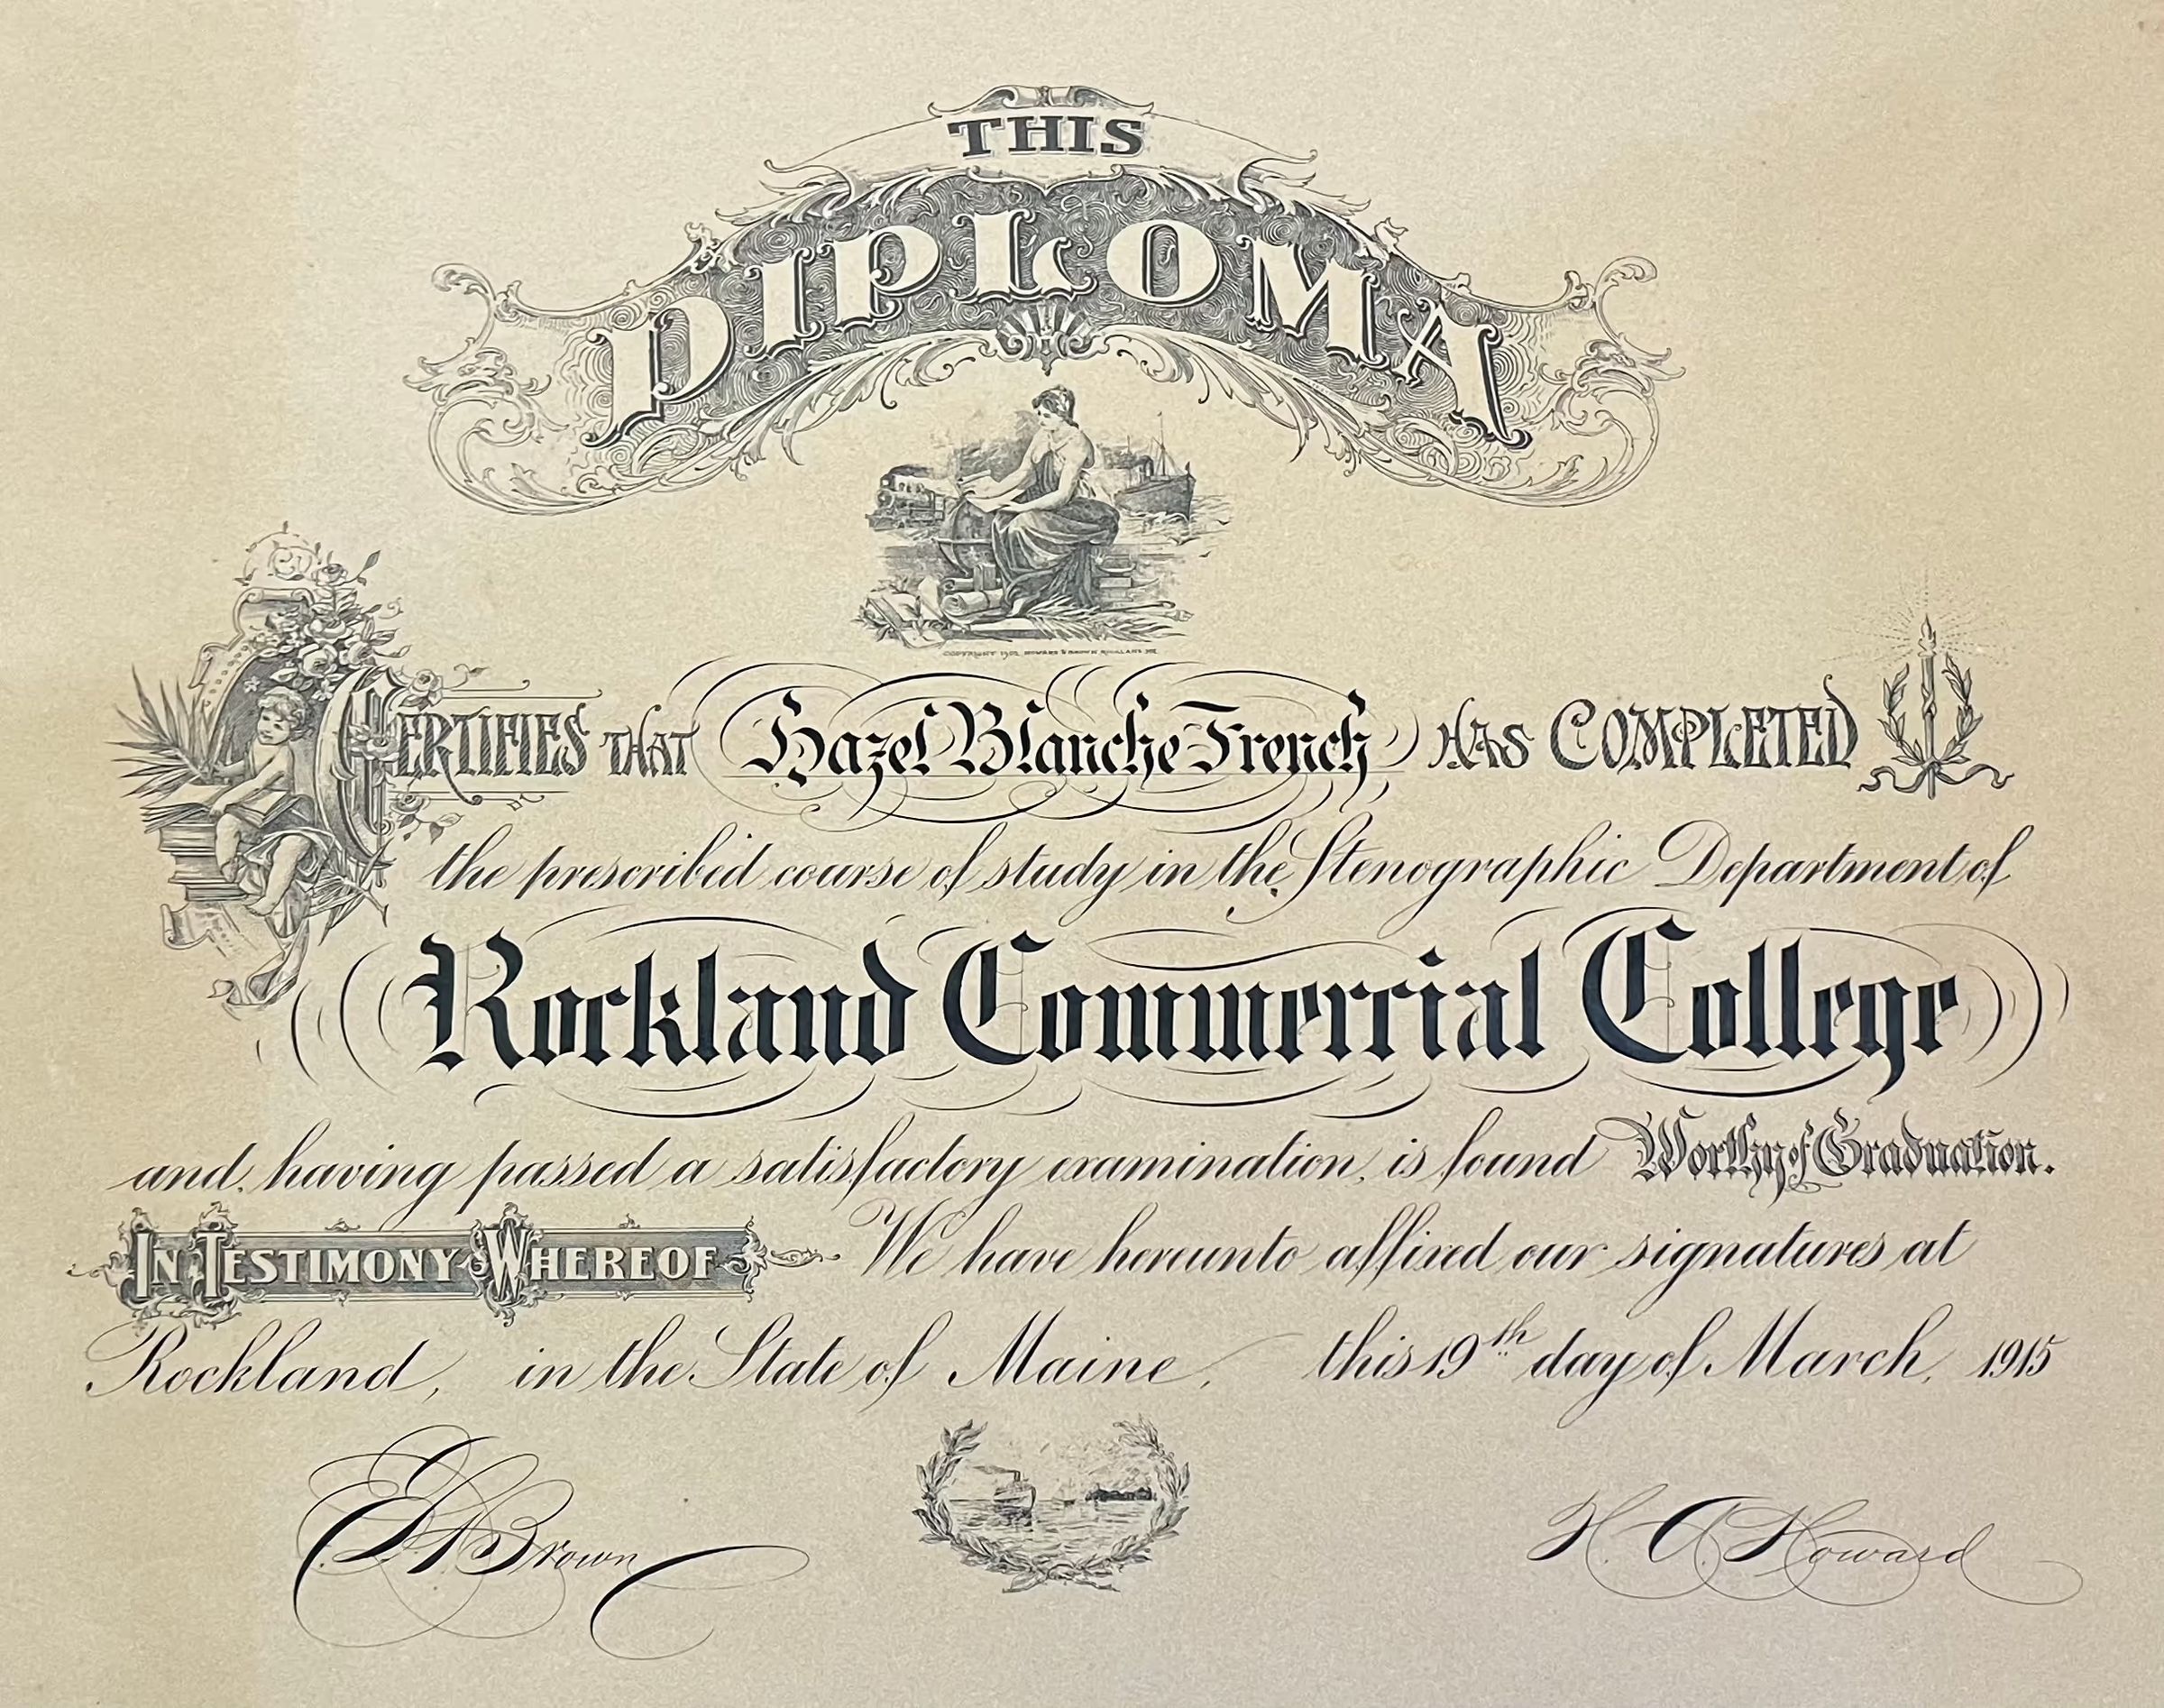 THIS
DIPLOMA
COPYRIGHT 1902 HOWARD & BROWN ROCKLAND ME.
CERTIFIES THAT Hazel Blanche French HAS COMPLETED
the prescribed course of study in the Stenographic Department of
Rockland Commercial College
and having passed a satisfactory examination, is found Worthy of Graduation.
IN TESTIMONY WHEREOF We have hereunto affixed our signatures at
Rockland, in the State of Maine, this 19th day of March, 1915
Brown
H. A. Howard